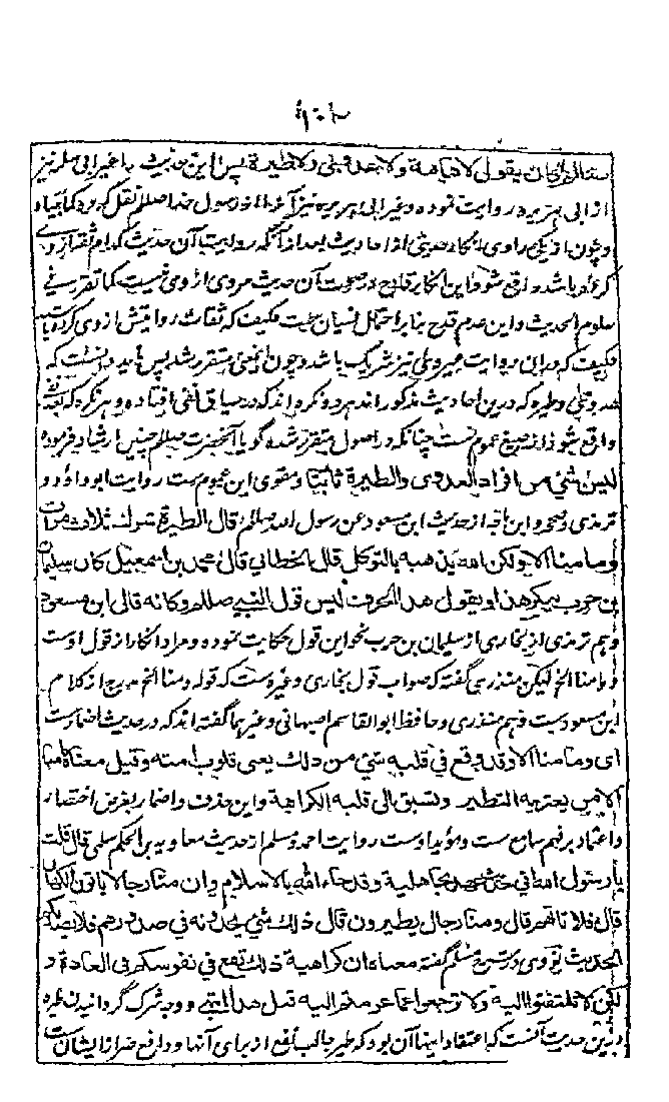 ان یقول لا هامة ولا عدوی ولا طیرة پس این حدیث را غیر ابی سلمه نیز
از ابی هریره روایت نموده و غیر ابی هریره نیز آنرا از رسول خدا صلعم نقل کرده کما بیناه
و چون از یکی راوی انکار حدیثی از احادیث بعد از آنکه روایت آن حدیث کدام ثقه از وی
کرده باشد واقع شود این انکار قادح در صحت آن حدیث مروی از وی نیست کما تقرر فی
علوم الحدیث و این عدم قدح بنابر احتمال نسیان ست فکیف که ثقات روایتش از وی کرده باشند
فکیف که در این روایت غیر وی نیز شریک باشد و چون اینمعنی متقرر شد پس باید دانست که
عدوی و طیره که درین احادیث مذکور اند هر دو نکره اند که در سیاق نفی افتاده و هر نکره که بعد نفی
واقع شود از صیغ عموم ست چنانکه در اصول متقرر شده گویا آنحضرت صلعم چنین ارشاد فرموده
لیس شیء من افراد العدوی والطیرة ثابتا و مقوی این عموم ست روایت ابو داؤد و
ترمذی و صححه و ابن ماجه از حدیث ابن مسعود عن رسول الله صلعم قال الطیرة شرك ثلاث مرات
وما منا الا ولکن الله یذهبه بالتوکل قال الخطابی قال محمد بن اسمعیل کان سلیمان
بن حرب ینکر هذا و یقول هذا الحرف لیس قول النبی صلعم وکانه قال ابن مسعود
و هم ترمذی از بخاری از سلیمان بن حرب نحو این قول حکایت نموده و مراد انکار از قول اوست
وما منا الخ لیکن منذری گفته که صواب قول بخاری و غیره ست که قوله وما منا الخ مدرج از کلام
ابن مسعود ست و هم منذری و حافظ ابو القاسم اصبهانی و غیرهما گفته اند که در حدیث اضمارست
ای وما منا الا وقد وقع فی قلبه شیء من ذلك یعنی قلوب امته وقیل معناه ما منا
الا من یعتریه التطیر وتسبق الی قلبه الکراهیة و این حذف و اضمار بغرض اختصار
و اعتماد بر فهم سامع ست و مؤید اوست روایت احمد و مسلم از حدیث معاویه بن الحکم سلمی قال قلت
یا رسول الله انی حدیث عهد بجاهلیة وقد جاء الله بالاسلام وان منا رجالا یاتون الکهان
قال فلا تاتهم قال ومنا رجال یتطیرون قال ذلك شیء یجدونه فی صدورهم فلا یصدنکم
الحدیث نووی در شرح مسلم گفته معناه ان کراهیة ذلك تقع فی نفوسکم فی العادة و
لکن لا تلتفتوا الیه ولا ترجعوا عما عزمتم الیه قبل هذا انتهی و وجه شرک گردانیدن طیره
درین حدیث آنست که اعتقاد اینها آن بود که طیر جالب نفع از برای آنها و دافع ضرر از ایشان ست